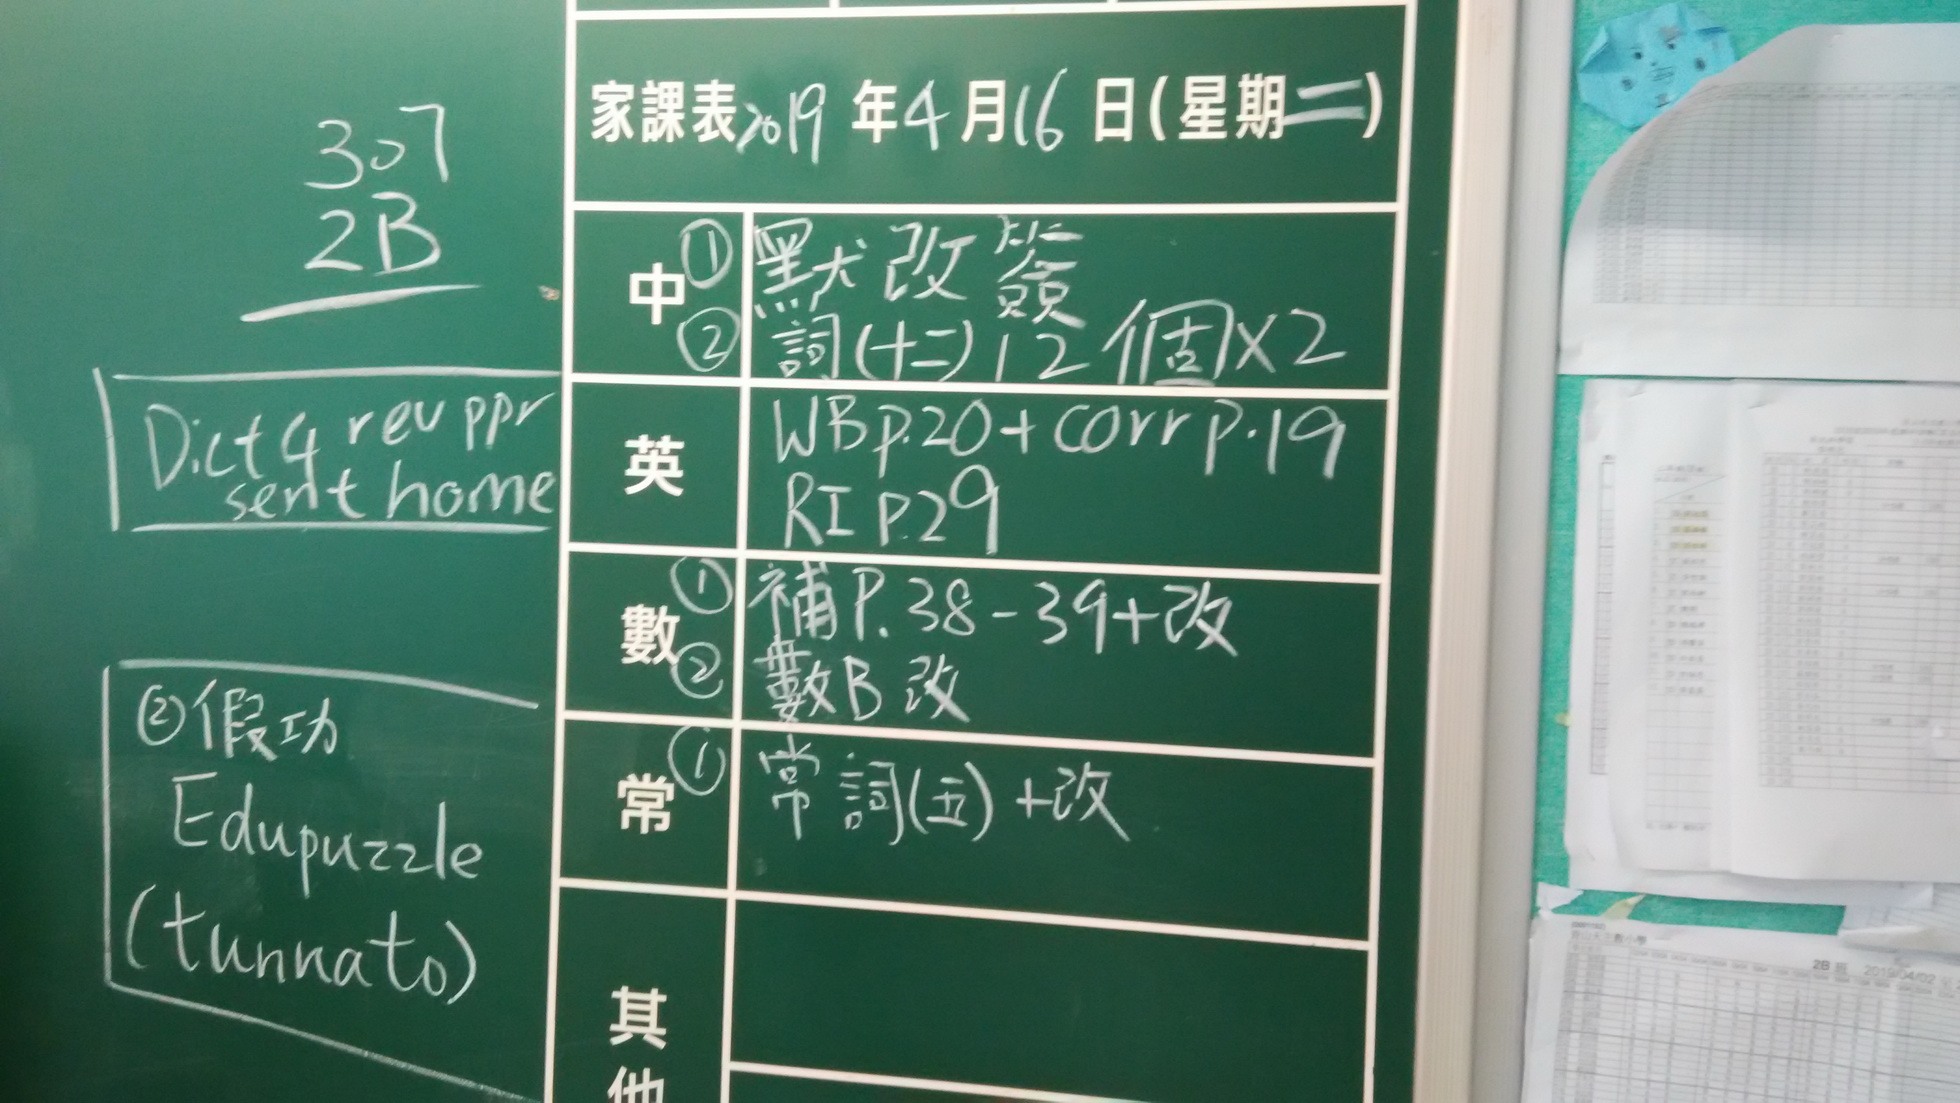 307
2B
Dict 4 rev ppr
sent home
② 假功
Edupuzzle
(tunnato)
家課表 2019 年 4 月 16 日 (星期二)
中
① 默改簽
② 詞(十二) 12個x2
英
WB p.20 + corr p.19
RI P.29
數
① 補 P.38-39+改
② 數B 改
常
① 常詞(五)+改
其他
2B 2019/04/02